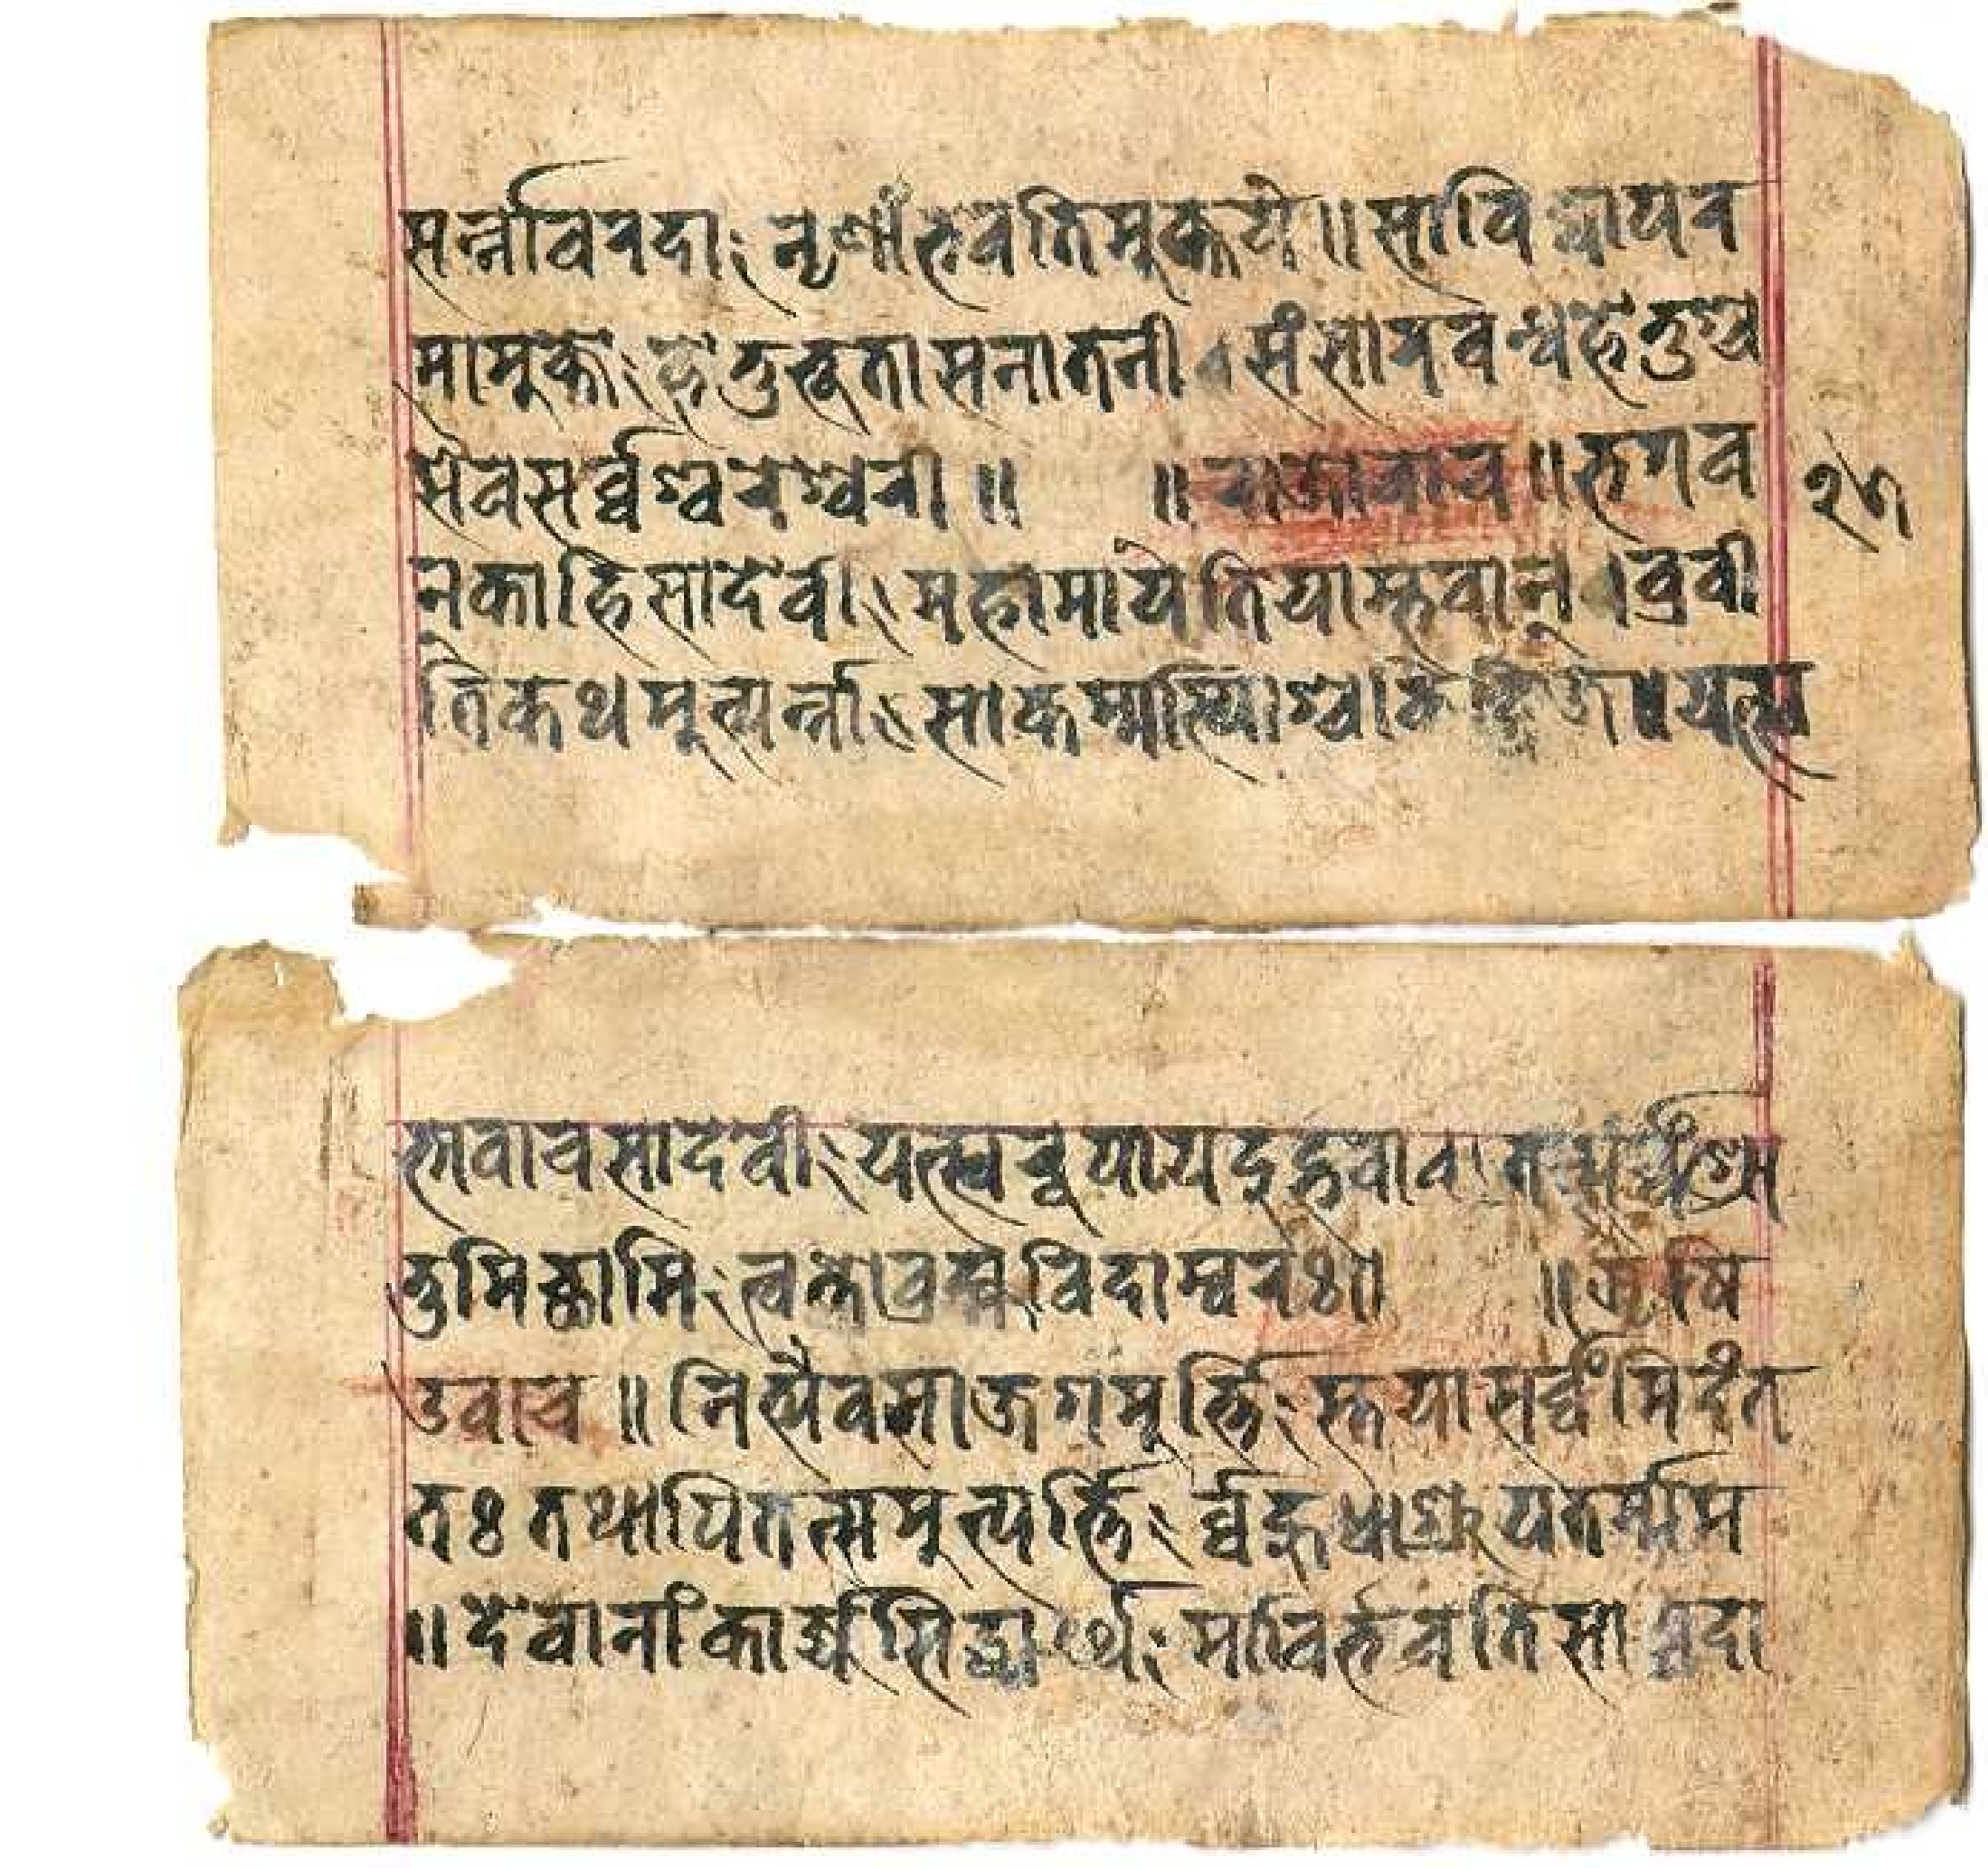 सन्नावरदा नृणांभवतिमूक्तये॥साविद्यापर
मामूक्ते हेतुभूतासनातनी । संसारबन्धहेतुश्च
सैवसर्व्वेश्वरेश्वरी॥ ॥राजोवाच॥भगव
नकाहिसादेवी महामायेतियाम्भवान् ।ब्रवी
तिकथमूत्पन्ना साकर्म्मास्याश्चकिंद्विज॥यत्प्र
भावाचसादेवी यत्स्वरूपायदुद्भवा। तत्सर्व्वंश्रो
तुमिच्छामि त्वत्तोब्रह्मविदाम्वरः॥ ॥ऋषि
उवाच॥नित्यैवसाजगमूर्त्ति स्तयासर्व्वंमिदंत
तः तथापितत्समूत्पर्त्ति र्व्वहुधाश्रूयतांमम
॥देवानांकार्य्यसिद्ध्यर्थ माविर्भवतिसायदा